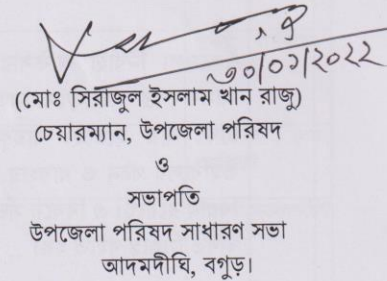 ৩০/০১/২০২২
(মোঃ সিরাজুল ইসলাম খান রাজু)
চেয়ারম্যান, উপজেলা পরিষদ
ও
সভাপতি
উপজেলা পরিষদ সাধারণ সভা
আদমদীঘি, বগুড়া।